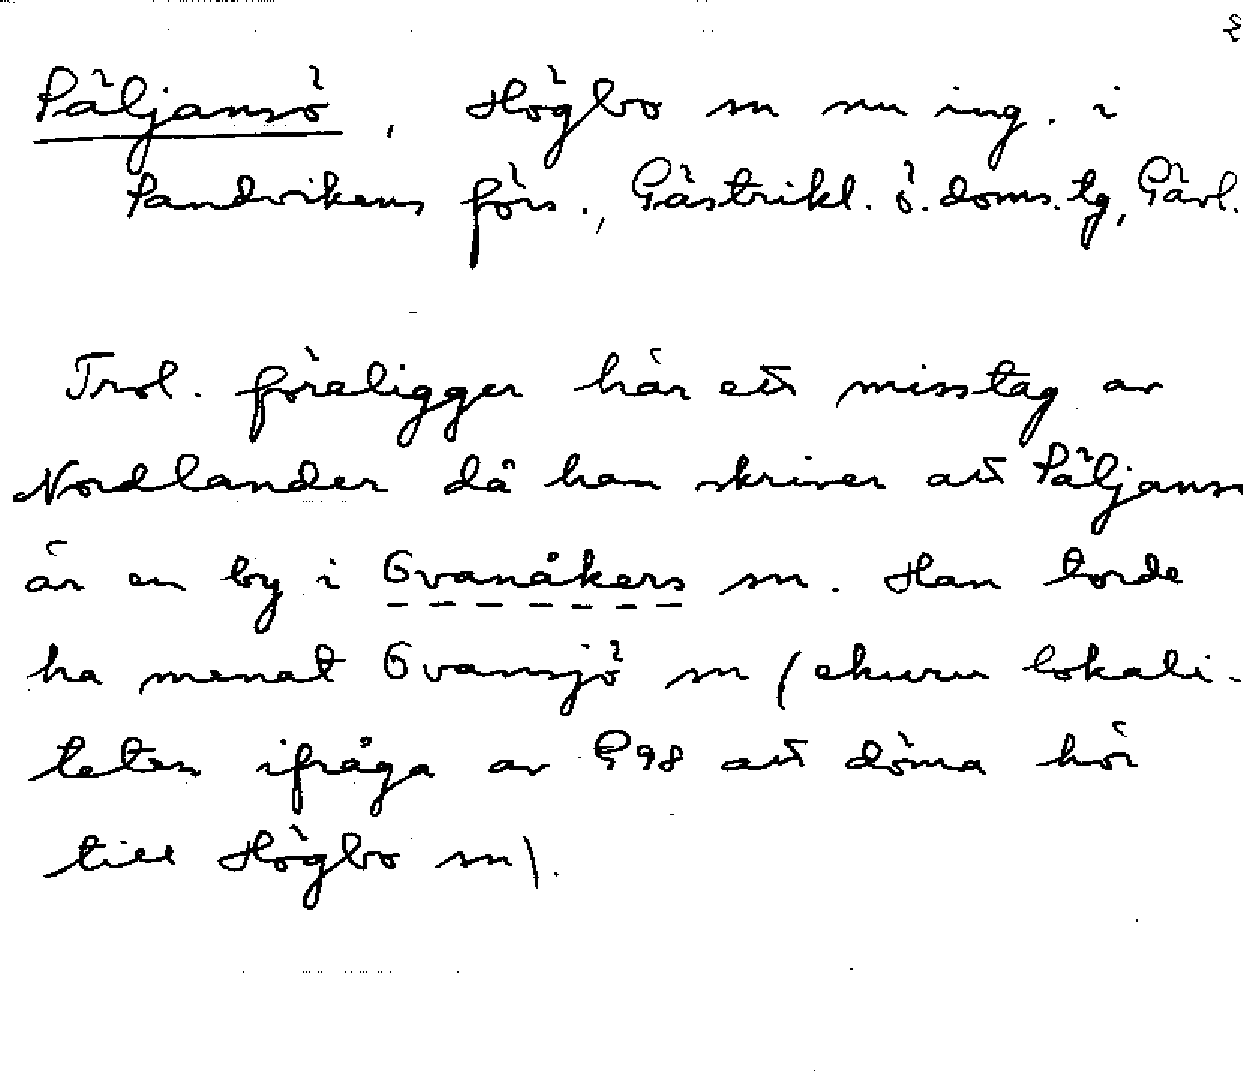 Säljansö, Högbo sn nu ing. i
Sandvikens förs., Gästrikl. ö. doms. tg, Gävl.
Trol. föreligger här ett misstag av
Nordlander då han skriver att Säljans
är en by i Ovanåkers sn. Han torde
ha menat Ovansjö sn (ehuru lokali-
teten ifråga av G98 att döma hör
till Högbo sn).